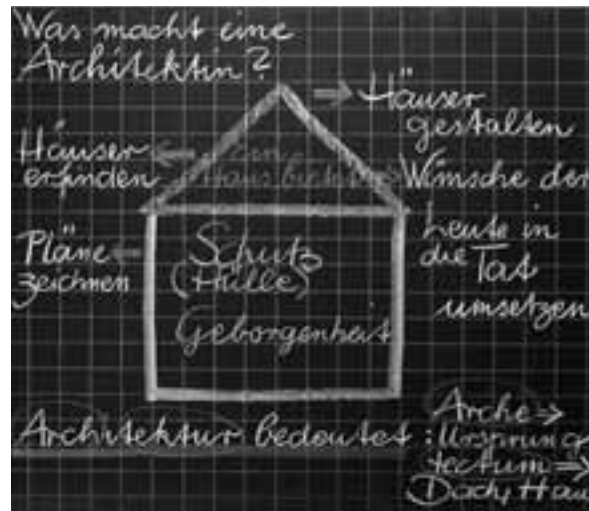 Was macht eine
Architektin?
Häuser
gestalten
Häuser
erfinden
ein
Haus bietet
Wünsche der
heute in
die Tat
umsetzen
Pläne
zeichnen
Schutz
(Hülle)
Geborgenheit
Architektur bedeutet :
Arche
Ursprung
tectum
Dach, Hau